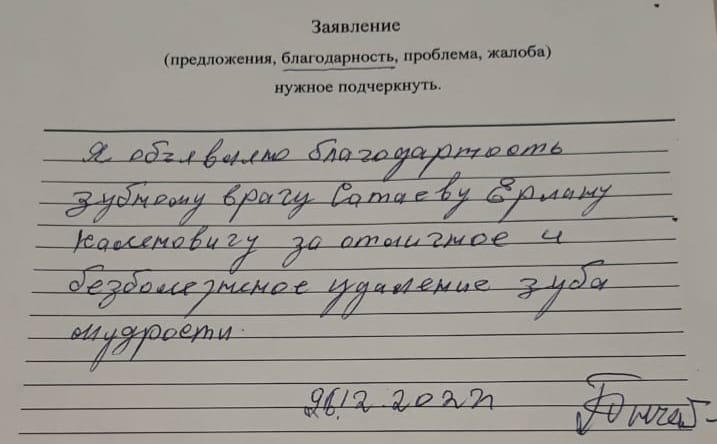 Заявление
(предложения, благодарность, проблема, жалоба)
нужное подчеркнуть.
Я объявляю благодарность
зубному врачу Сатаеву Ерлану
Каленовичу за отличное и
безболезненное удаление зуба
мудрости.
26.12.2022